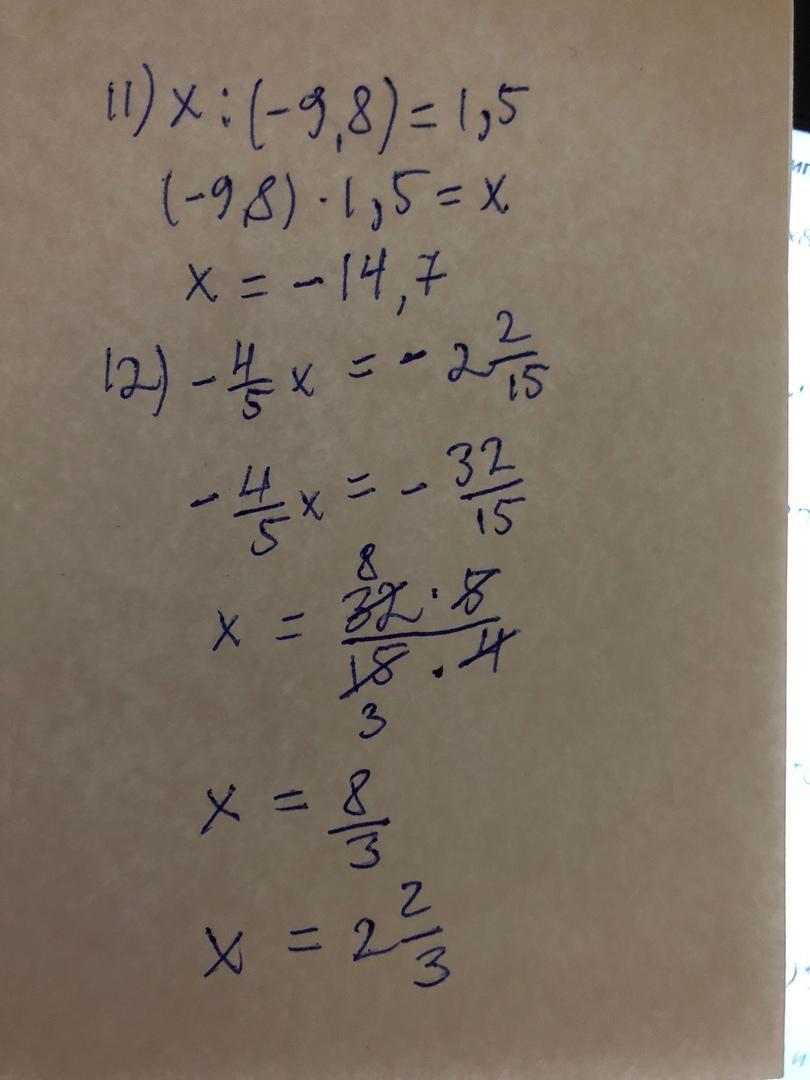 11) x : (-9,8) = 1,5
(-9,8) · 1,5 = x
x = -14,7
12) -4/5 x = -2 2/15
-4/5 x = -32/15
x = 32 · 5 / 15 · 4
8
3
x = 8/3
x = 2 2/3